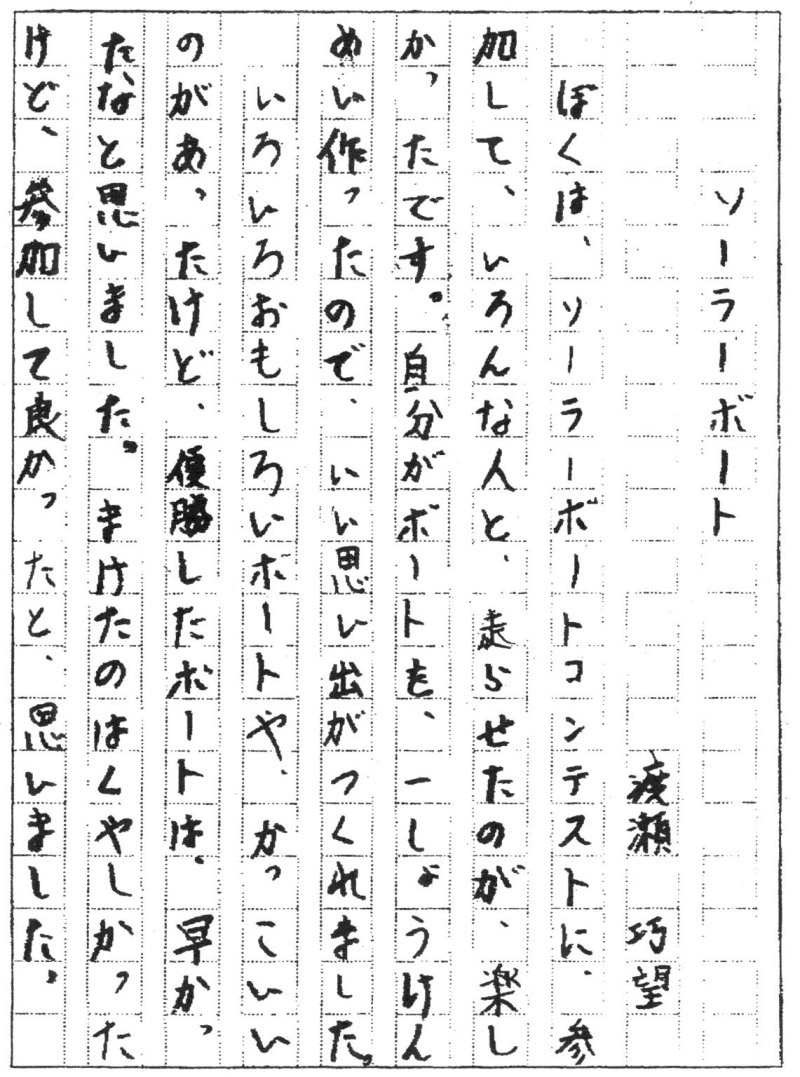 ソーラーボート
渡瀬 巧望
ぼくは、ソーラーボートコンテストに、参
加して、いろんな人と、走らせたのが、楽し
かったです。自分がボートを、一しょうけん
めい作ったので、いい思い出がつくれました。
いろいろおもしろいボートや、かっこいい
のがあったけど、優勝したボートは、早かっ
たなと思いました。まけたのはくやしかった
けど、参加して良かったと、思いました。